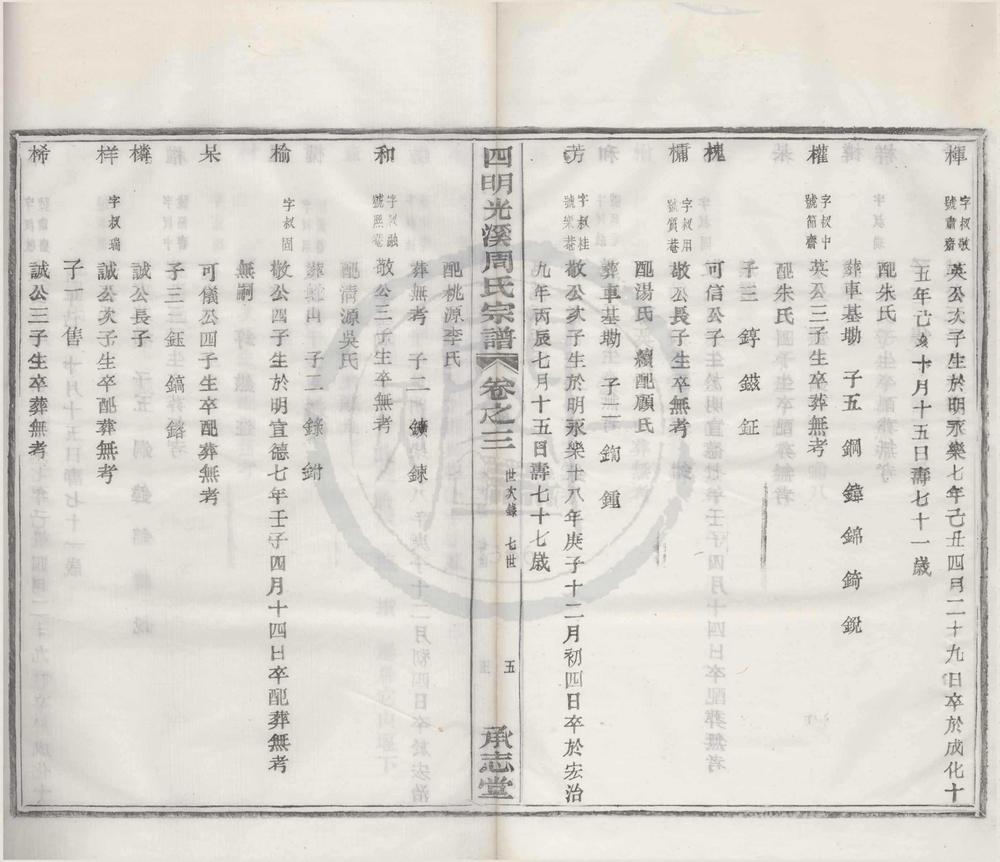 楎 字叔敬 號肅齋 英公次子生於明永樂七年己丑四月二十九日卒於成化十
五年己亥十月十五日壽七十一歲
配朱氏
葬車基墈 子五 鋼 鍏 錦 錡 銳
權 字叔中 號節齋 英公三子生卒葬無考
配朱氏
子三 錞 鎡 鉦
槐 可信公子
槦 字叔用 號質菴 敬公長子生卒無考
配湯氏 續配顧氏
葬車基墈 子二 銁 鍾
芳 字叔桂 號樂菴 敬公次子生於明永樂十八年庚子十二月初四日卒於宏治
九年丙辰七月十五日壽七十七歲
四明光溪周氏宗譜 卷之三 世次錄 七世 五 承志堂
配桃源李氏
葬無考 子二 鑛 鍊
和 字叔融 號熙菴 敬公三子生卒無考
配清源吳氏
子二 錄 鉗
榆 字叔固 敬公四子生於明宣德七年壬子四月十四日卒配葬無考
無嗣
杲 可儀公四子生卒配葬無考
子三 鈺 鎬 鎔
檊 誠公長子
样 字叔瑞 誠公次子生卒配葬無考
子一 售
桸 誠公三子生卒葬無考